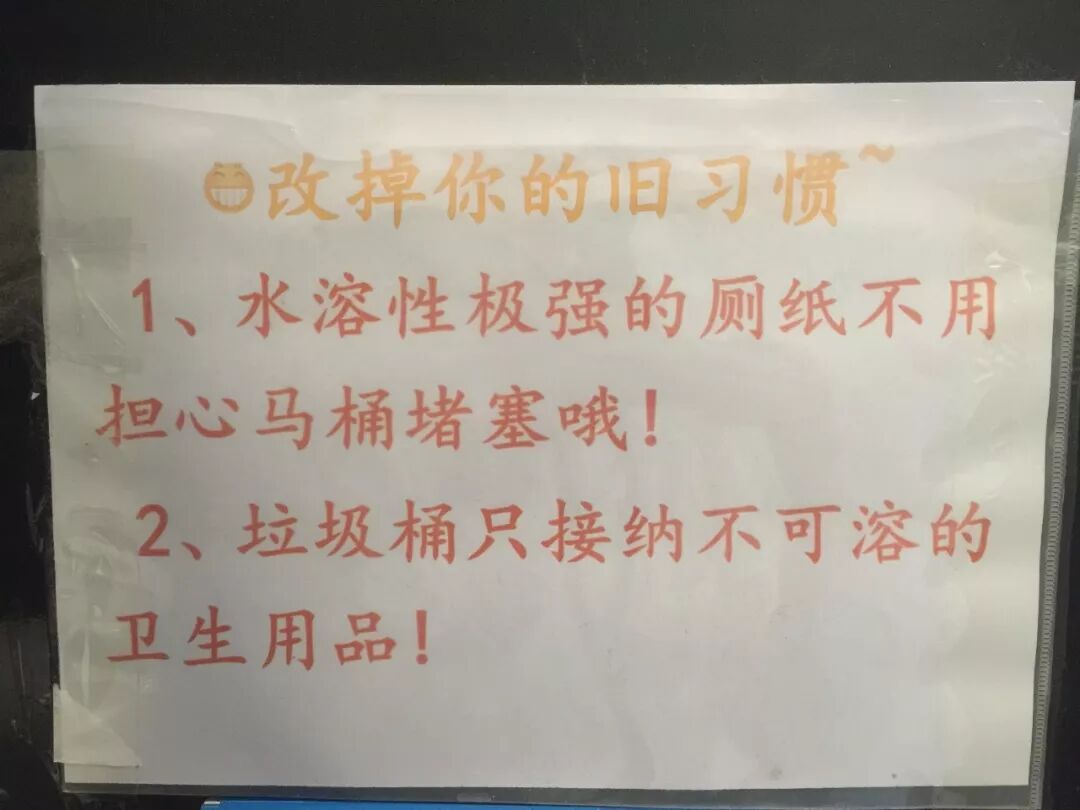 改掉你的旧习惯~
1、水溶性极强的厕纸不用
担心马桶堵塞哦!
2、垃圾桶只接纳不可溶的
卫生用品!